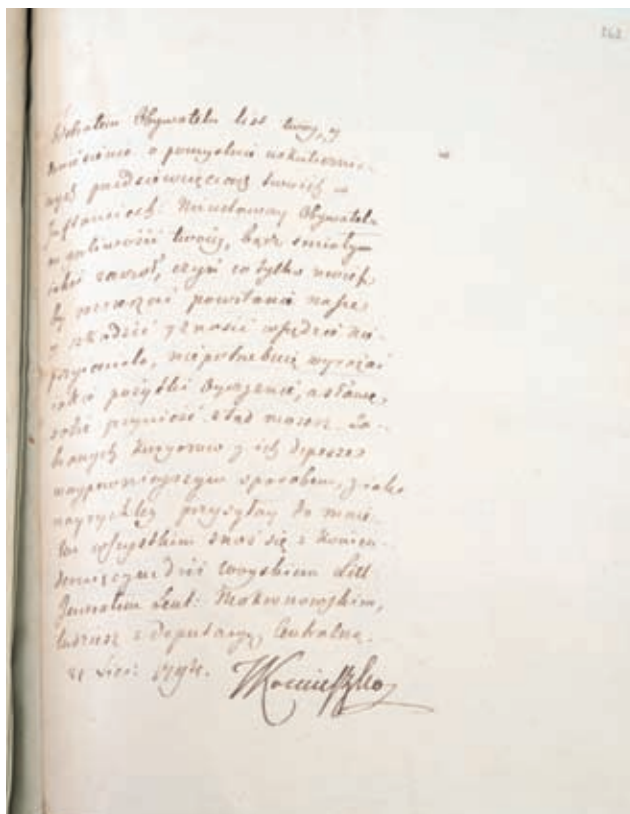 262
Odebrałem Obywatelu list twoy, y
doniesienie o pomyślnie uskutecznio-
nych przedsięwzięciach twoich w
Inflanciech. Nieustaway Obywatelu
w gorliwości twoiey, bądź śmiały
iakoś zaczoł, czyń co tylko może
by wesprzeć powstanie nasze
y szkodzić y znosić wszędzie nie-
przyiaciela, niepotrzebuię wyrażać
iakie pożytki Oyczyznie, a sławę
sobie przynieść stąd możesz. Za-
branych kuryerow y ich depesze
naypewnieyszym sposobem, y iako
nayrychley przysyłay do mnie.
We wszystkim znoś się z komen-
deruiącym dziś woyskiem Litt
Jenerałem Leut: Mokronowskim,
tudziesz z Deputacyą Centralną.
Lipc: 1794.
TKościuszko